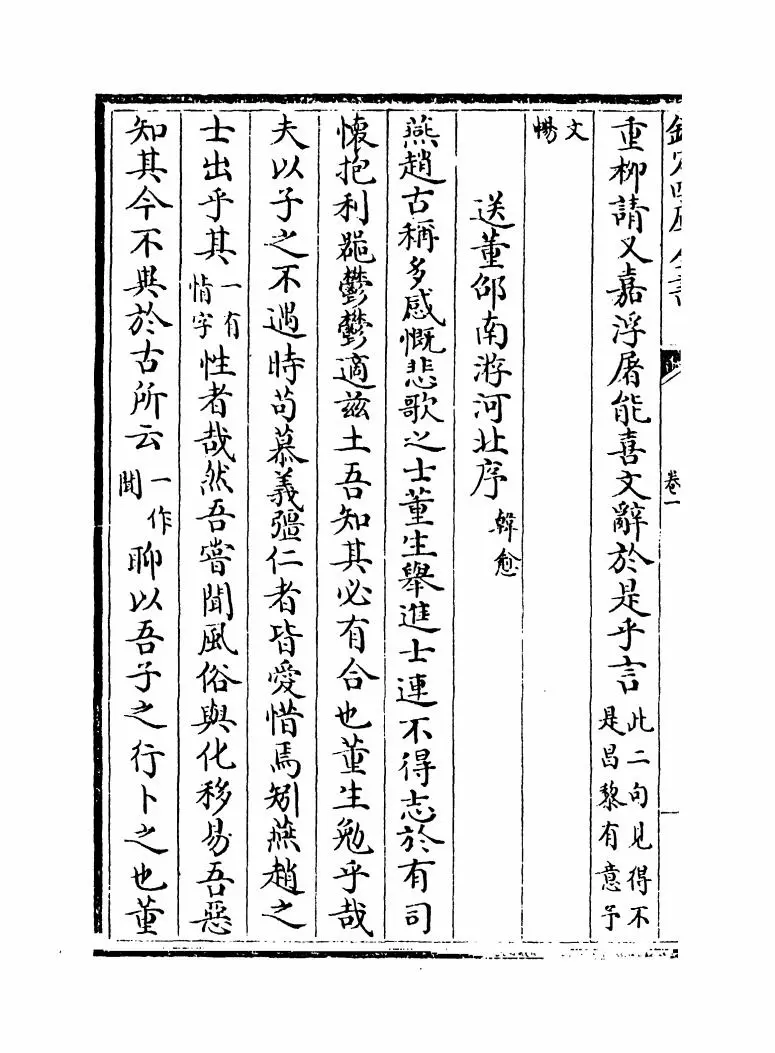 欽定四庫全書
卷一
重柳請又嘉浮屠能喜文辭於是乎言此二句見得不是昌黎有意予
文暢
送董邵南游河北序韓愈
燕趙古稱多感慨悲歌之士董生舉進士連不得志於有司
懷抱利器鬱鬱適兹土吾知其必有合也董生勉乎哉
夫以子之不遇時苟慕義彊仁者皆愛惜焉矧燕趙之
士出乎其一有情字性者哉然吾嘗聞風俗與化移易吾惡
知其今不異於古所云一作聞聊以吾子之行卜之也董